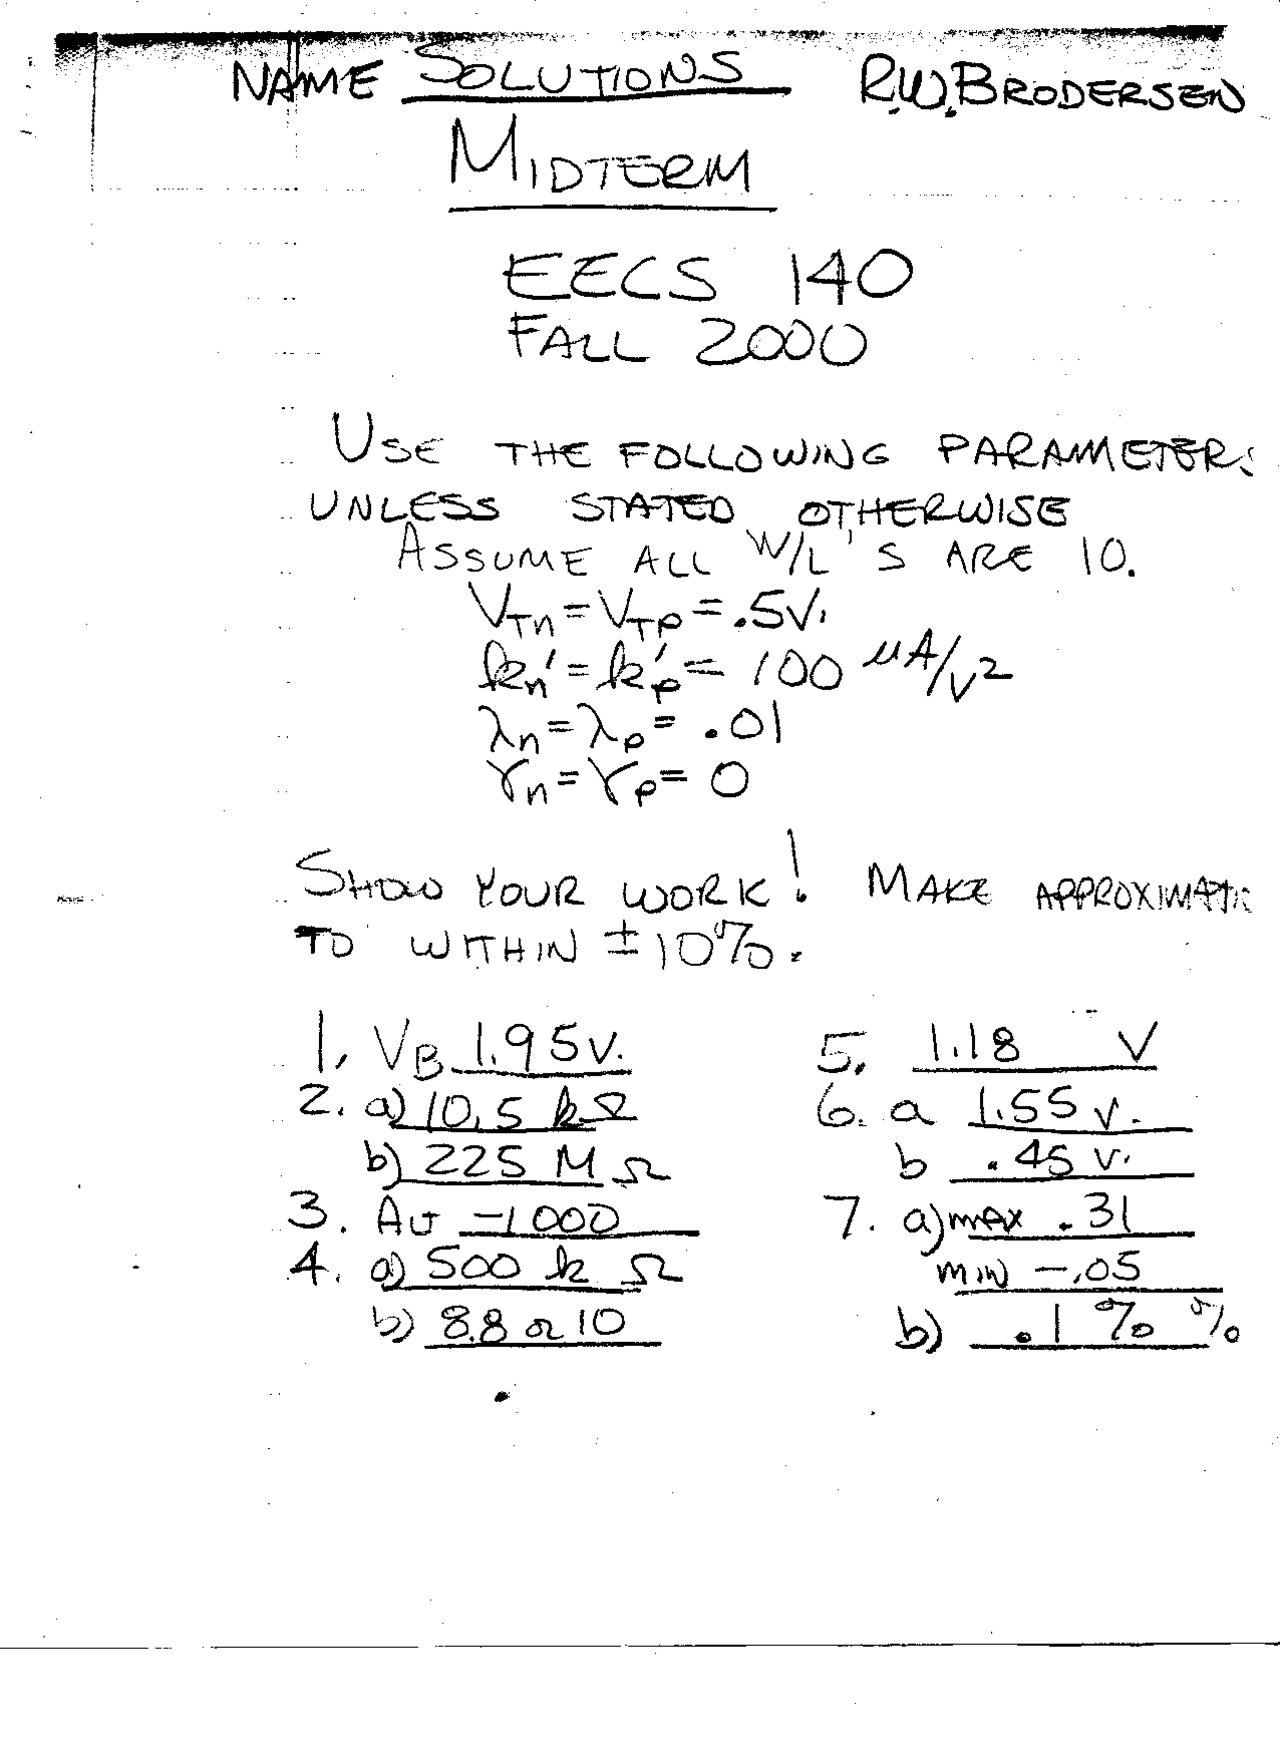 NAME SOLUTIONS R.W. BRODERSEN
MIDTERM
EECS 140
FALL 2000
USE THE FOLLOWING PARAMETERS
UNLESS STATED OTHERWISE
ASSUME ALL W/L'S ARE 10.
V_Tn = V_Tp = .5V.
k_n' = k_p' = 100 μA/V²
λ_n = λ_p = .01
γ_n = γ_p = 0
SHOW YOUR WORK! MAKE APPROXIMATI
TO WITHIN ±10%.
1. V_B 1.95V.
2. a) 10.5 kΩ
b) 225 M Ω
3. Av -1000
4. a) 500 k Ω
b) 8.8 or 10
5. 1.18 V
6. a 1.55 V.
b .45 V.
7. a) max .31
min -.05
b) .1 % %